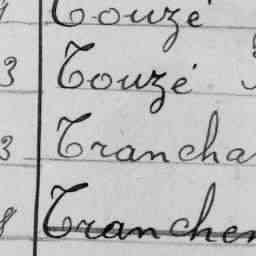 Touzé
3 Touzé
3 Trancha
8 Trancher